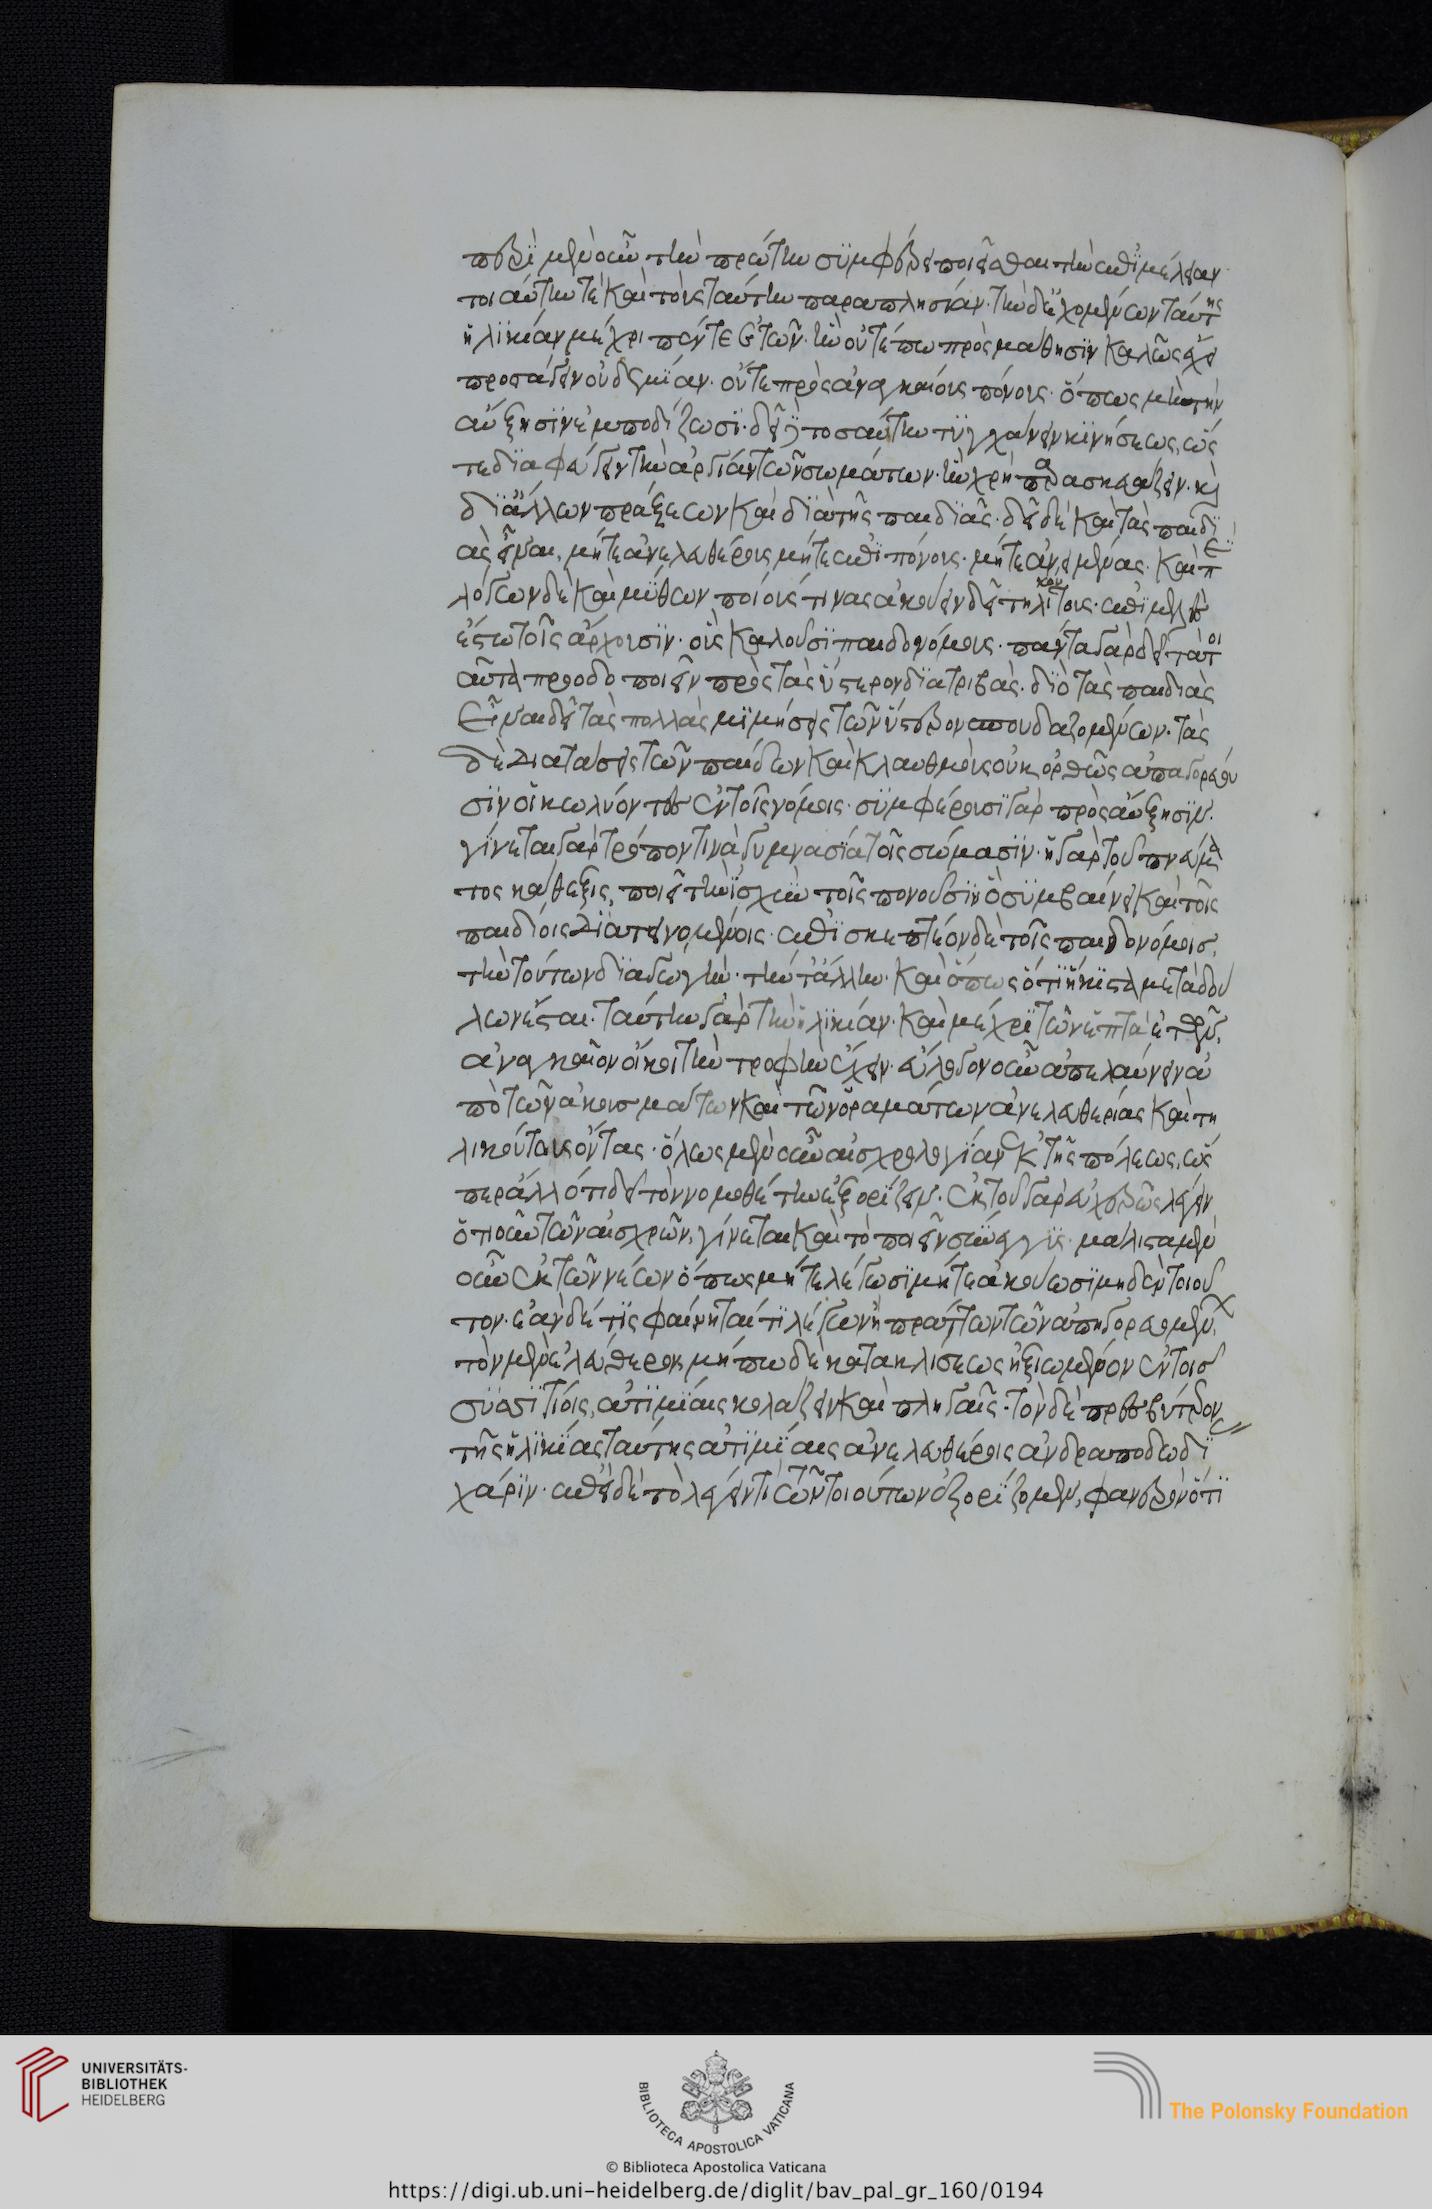 περὶ μὲν οὖν τὴν πρώτην συμφέρει ποιεῖσθαι τὴν ἐπιμέλειαν
τοιαύτην τε καὶ τοῖς ταύτην παραπλησίαν. τὴν δ' ἐχομένων ταύτης
ἡλικίαν μέχρι πέντε ἐτῶν. ἣν οὔτέ πω πρὸς μάθησιν καλῶς ἔχει
προσάγειν οὐδεμίαν. οὔτε πρὸς ἀναγκαίοις πόνοις. ὅπως μὴ τὴν
αὔξησιν ἐμποδίζωσι. δεῖ τοσαύτην τυγχάνειν κινήσεως, ὥς
τε διαφεύγειν τὴν ἀργίαν τῶν σωμάτων. ἣν χρὴ παρασκευάζειν. καὶ
δι' ἄλλων πράξεων καὶ διὰ τῆς παιδιᾶς. δεῖ δὲ καὶ τὰς παιδι
ὰς εἶναι, μήτε ἀνελευθέρους μήτε ἐπιπόνους. μήτε ἀνειμένας. καὶ περὶ
λόγων δὲ καὶ μύθων ποίους τινας ἀκούειν δεῖ τηλικούτους. ἐπιμελὲς
ἔστω τοῖς ἄρχουσιν. οὓς καλοῦσι παιδονόμους. πάντα γὰρ δεῖ τὰ τοι
αῦτα προοδοποιεῖν πρὸς τὰς ὕστερον διατριβάς. διὸ τὰς παιδιὰς
εἶναι δεῖ τὰς πολλὰς μιμήσεις τῶν ὕστερον σπουδαζομένων. τὰς
δὲ διατάσεις τῶν παίδων καὶ κλαυθμοὺς οὐκ ὀρθῶς ἀπαγορεύου
σιν οἱ κωλύοντες ἐν τοῖς νόμοις. συμφέρουσι γὰρ πρὸς αὔξησιν.
γίνεται γὰρ τρόπον τινὰ γυμνασία τοῖς σώμασιν. ἡ γὰρ τοῦ πνεύμα
τος κάθεξις, ποιεῖ τὴν ἰσχὺν τοῖς πονοῦσιν ὃ συμβαίνει καὶ τοῖς
παιδίοις διατεινομένοις. ἐπισκεπτέον δὲ τοῖς παιδονόμοις,
τὴν τούτων διαγωγὴν. τήν τ' ἄλλην. καὶ ὅπως ὅτι ἥκιστα μετὰ δού
λων ἔσται. ταύτην γὰρ τὴν ἡλικίαν. καὶ μέχρι τῶν ἑπτὰ ἐτῶν,
ἀναγκαῖον οἴκοι τὴν τροφὴν ἔχειν. εὔλογον οὖν ἀπελαύνειν ἀ
πὸ τῶν ἀκουσμάτων καὶ τῶν ὁραμάτων ἀνελευθερίας καὶ τη
λικούτους ὄντας. ὅλως μὲν οὖν αἰσχρολογίαν ἐκ τῆς πόλεως, ὥς
περ ἄλλό τι δεῖ τὸν νομοθέτην ἐξορίζειν. ἐκ τοῦ γὰρ εὐχερῶς λέγειν
ὁτιοῦν τῶν αἰσχρῶν, γίνεται καὶ τὸ ποιεῖν σύνεγγυς. μάλιστα μὲν
οὖν ἐκ τῶν νέων ὅπως μήτε λέγωσι μήτε ἀκούωσι μηδὲν τοιοῦ
τον. ἐὰν δέ τις φαίνηταί τι λέγων ἢ πράττων τῶν ἀπηγορευμένων,
τὸν μὲν ἐλεύθερον μήπω δὲ κατακλίσεως ἠξιωμένον ἐν τοῖς
συσσιτίοις, ἀτιμίαις κολάζειν καὶ πληγαῖς. τὸν δὲ πρεσβύτερον
τῆς ἡλικίας ταύτης ἀτιμίαις ἀνελευθέροις ἀνδραποδωδί
χάριν. ἐπεὶ δὲ τὸ λέγειν τι τῶν τοιούτων ἐξορίζομεν, φανερὸν ὅτι
UNIVERSITÄTS-
BIBLIOTHEK
HEIDELBERG
BIBLIOTECA APOSTOLICA VATICANA
The Polonsky Foundation
© Biblioteca Apostolica Vaticana
https://digi.ub.uni-heidelberg.de/diglit/bav_pal_gr_160/0194